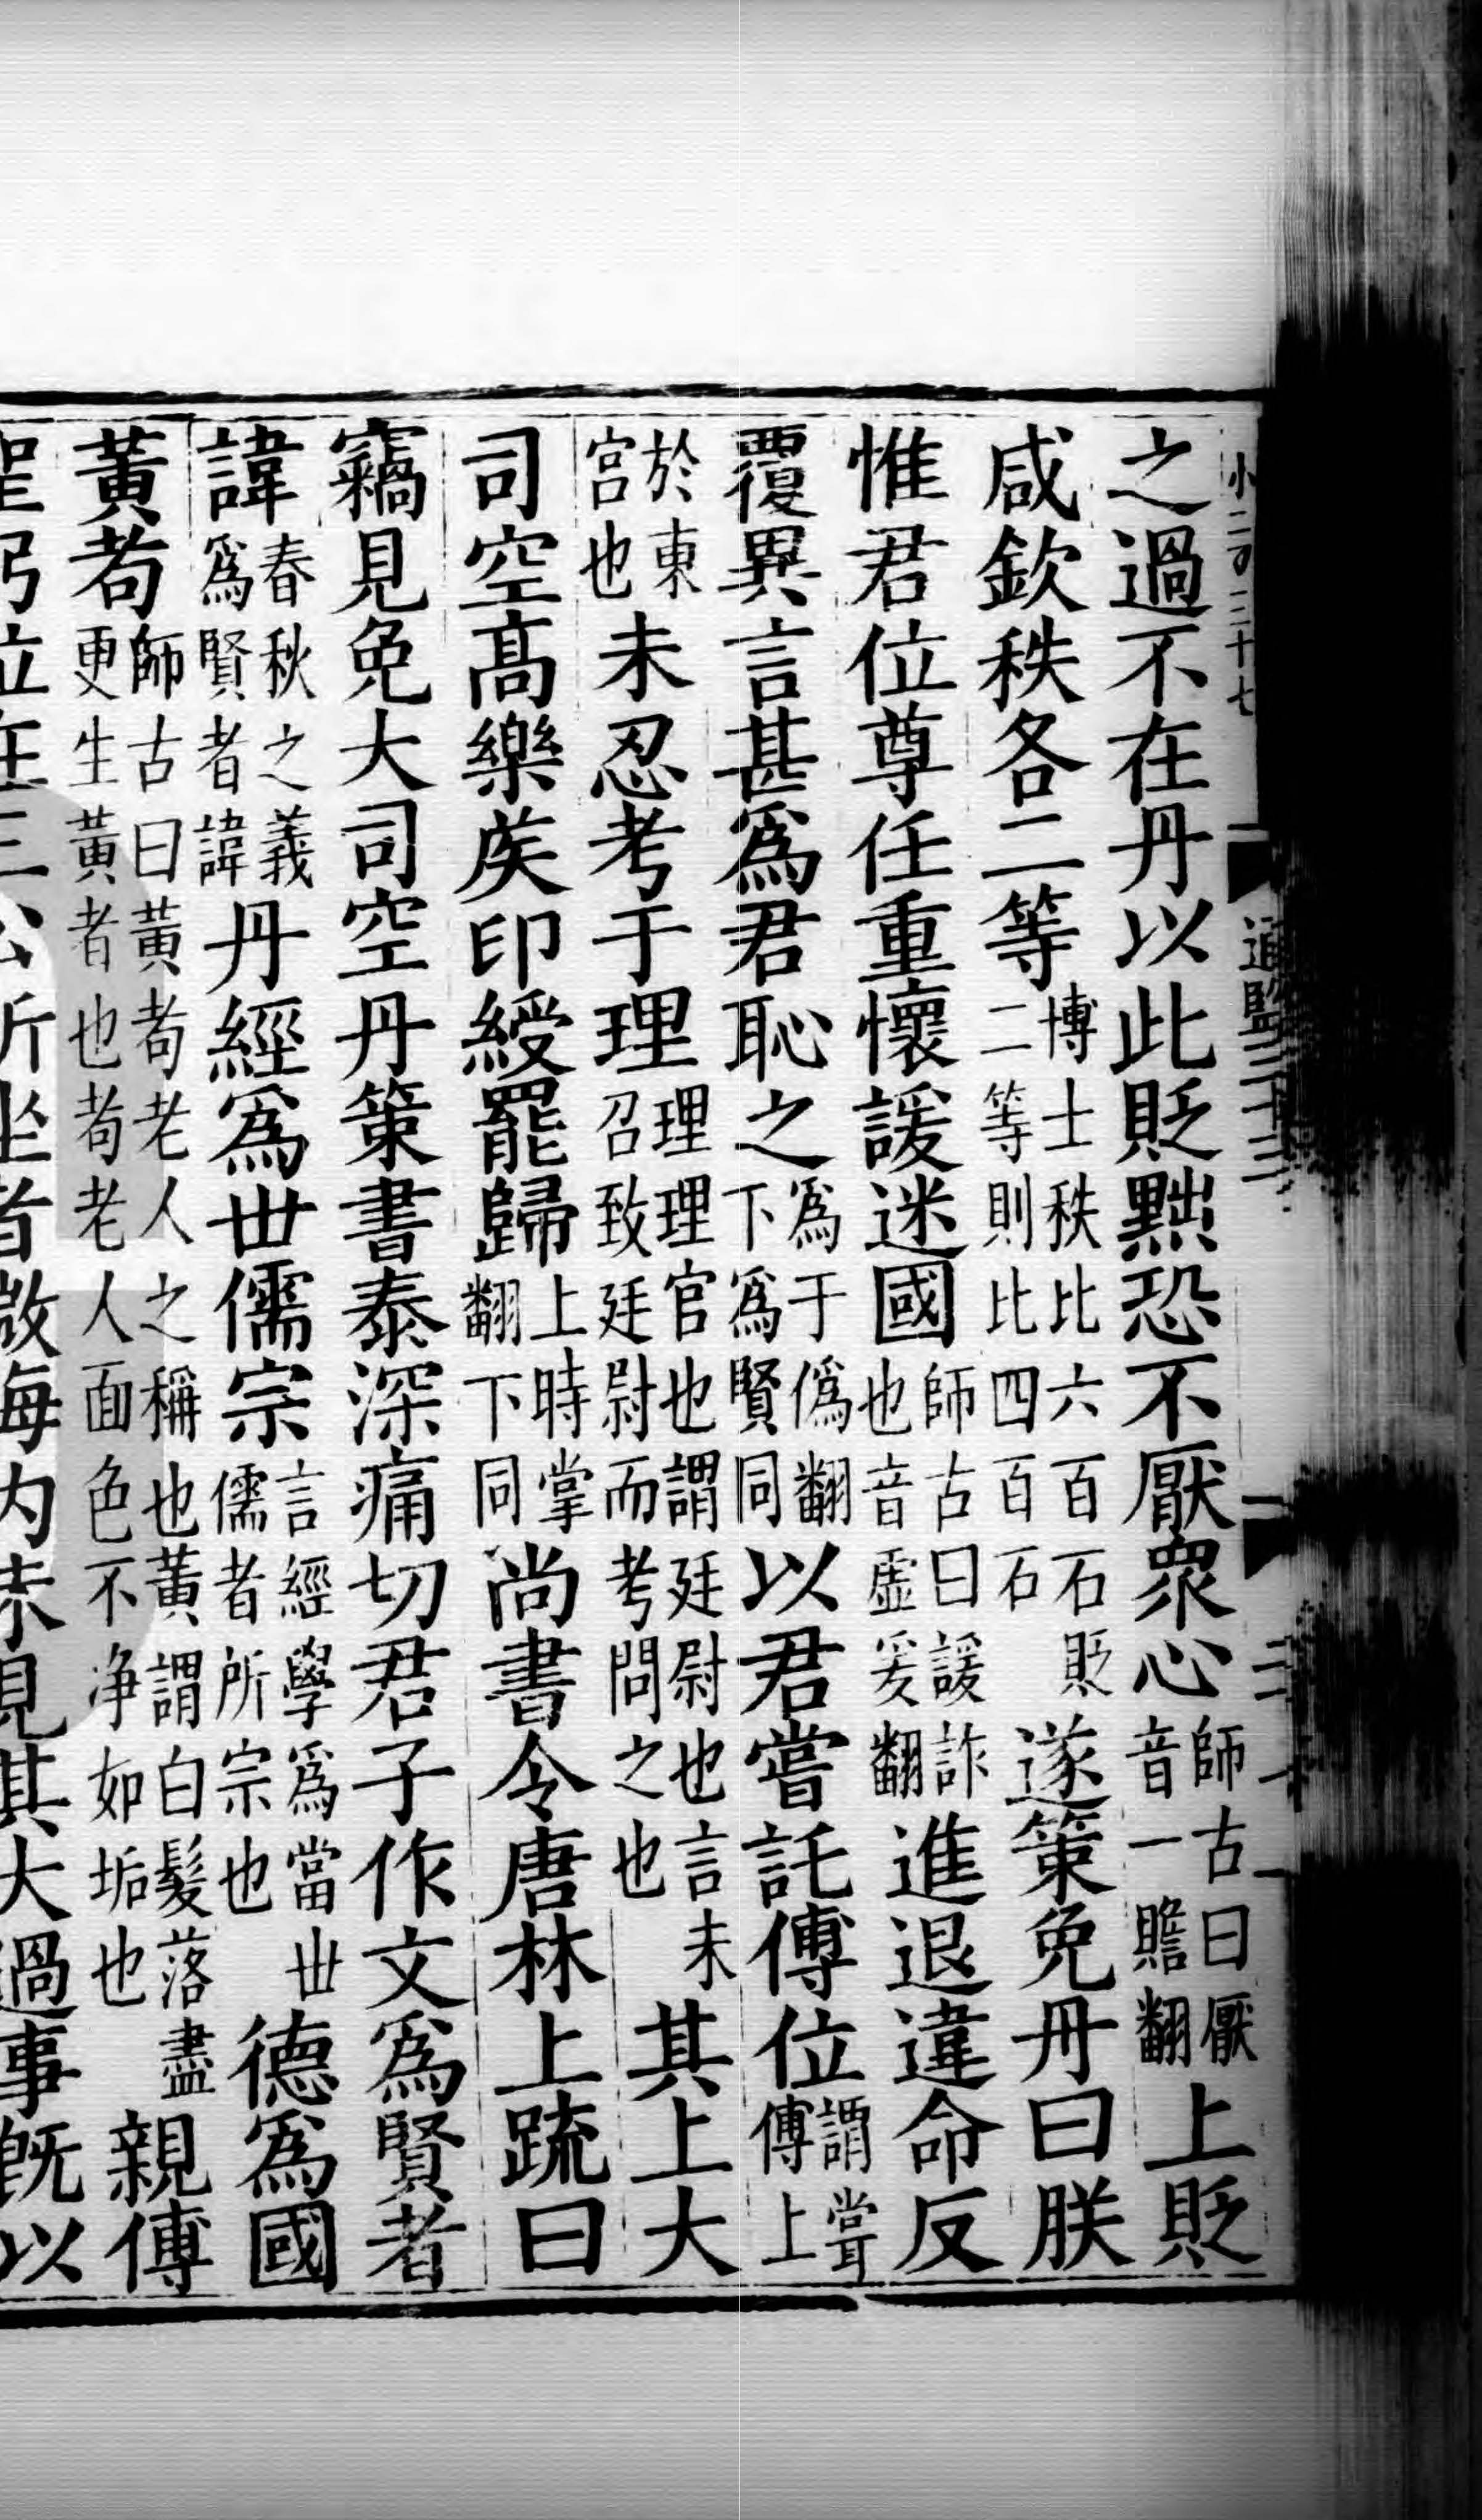 小二百三十七　通鑑三十三　二十一
之過不在丹以此貶黜恐不厭衆心師古曰厭音一贍翻上貶
咸欽秩各二等博士秩比六百石貶二等則比四百石遂策免丹曰朕
惟君位尊任重懷諼迷國師古曰諼詐也音虛爰翻進退違命反
覆異言甚爲君恥之爲于僞翻下爲賢同以君嘗託傅位謂嘗傅上
於東宮也未忍考于理理理官也謂廷尉也言未召致廷尉而考問之也其上大
司空高樂矦印綬罷歸上時掌翻下同尚書令唐林上疏曰
竊見免大司空丹策書泰深痛切君子作文爲賢者
諱春秋之義爲賢者諱丹經爲丗儒宗言經學爲當丗儒者所宗也德爲國
黃耇師古曰黃耇老人之稱也黃謂白髮落盡更生黃者也耇老人面色不净如垢也親傅
聖躬位在三公所坐者微海内未見其大過事旣以